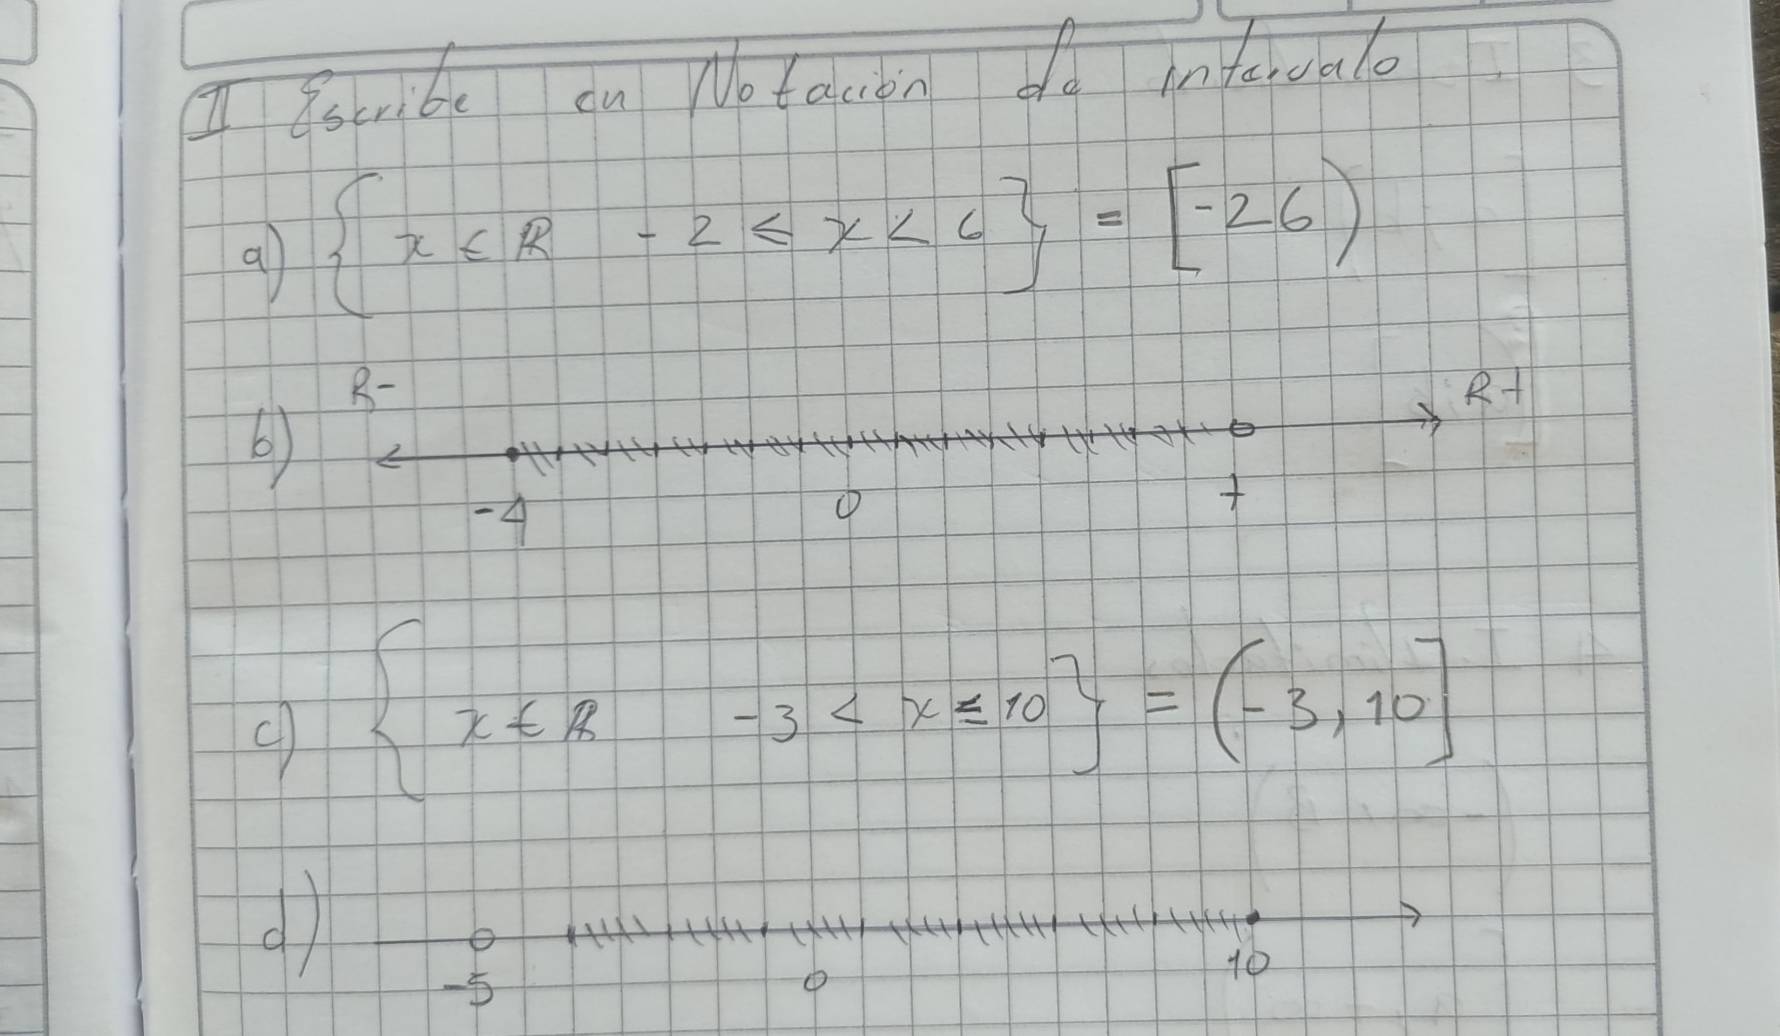 II Escribe en Notación de intervalo
a) { x ∈ ℝ -2 ≤ x < 6 } = [-2 6)
R- R+
b)
-4 0 7
c) { x ∈ ℝ -3 < x ≤ 10 } = (-3, 10]
d)
-5 0 10